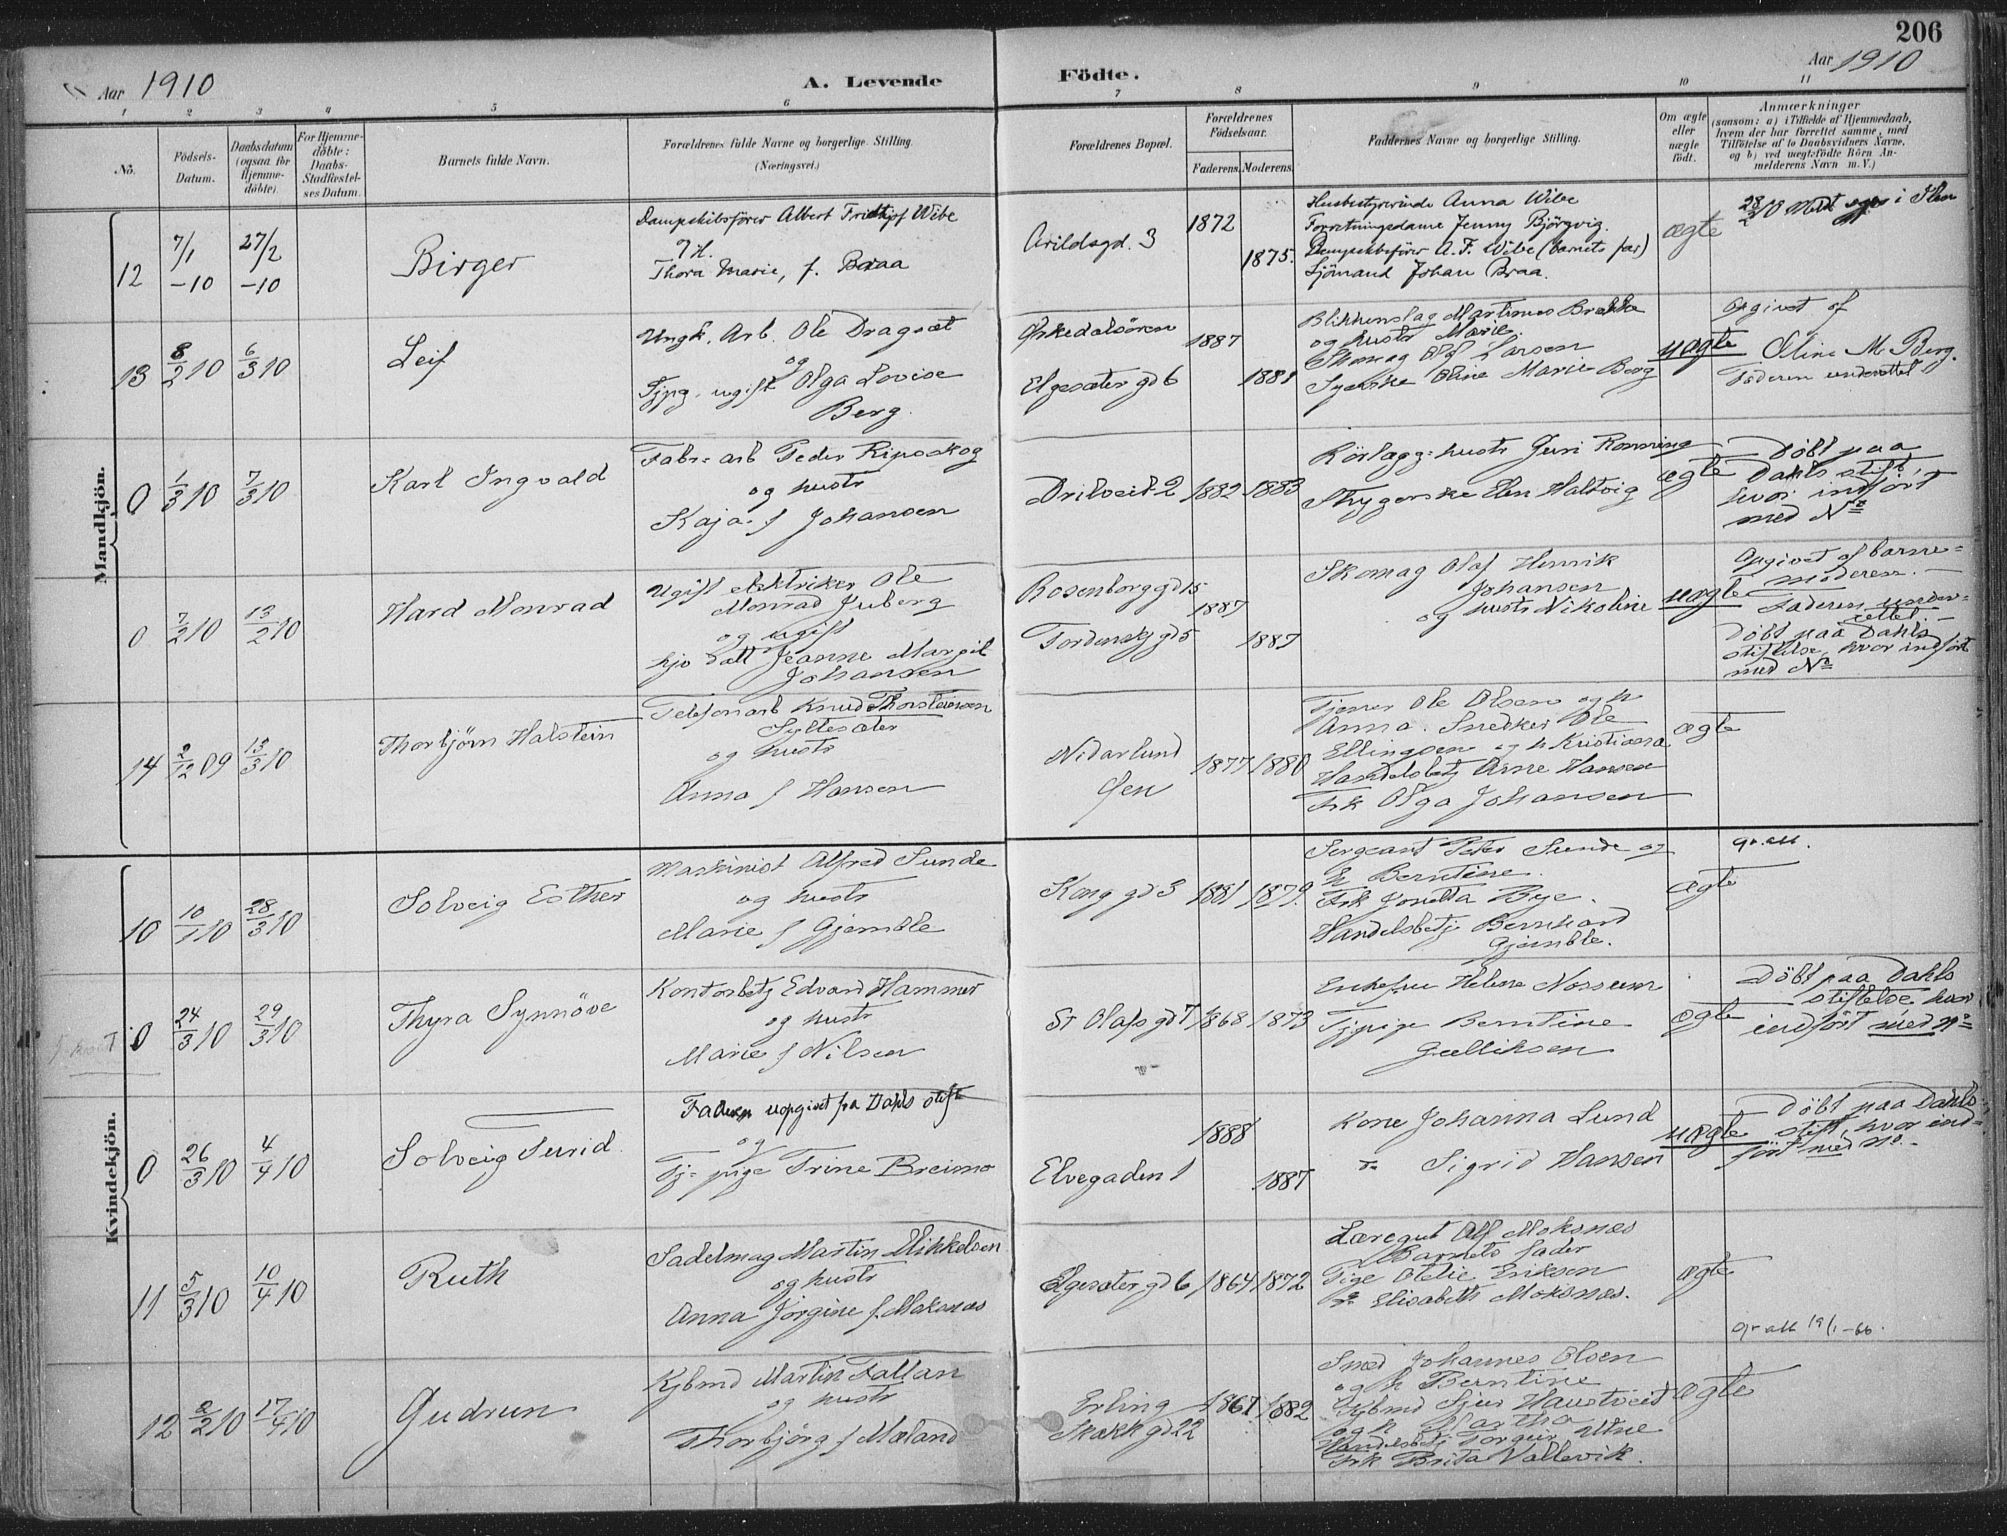 206
Aar 1910
A. Levende
Födte.
Aar 1910
1 2 3 4 5 6 7 8 9 10 11
No.
Födsels-
Datum.
Daabsdatum
(ogsaa for
Hjemme-
döbte).
For Hjemme-
döbte:
Daabs-
Stadfestel-
ses Datum.
Barnets fulde Navn.
Forældrenes fulde Navne og borgerlige Stilling.
(Næringsvei.)
Forældrenes Bopæl.
Forældrenes
Födselsaar.
Faderens.
Moderens.
Faddernes Navne og borgerlige Stilling.
Om ægte
eller
uægte
födt.
Anmærkninger
(saasom: a) i Tilfælde af Hjemmedaab,
hvem der har forrettet samme, med
Tilföielse af to Daabsvidners Navne,
og b) ved uægtefödte Börn An-
melderens Navn m. V.)
Mandkjön.
12
7/1
-10
27/2
-10
Birger
Dampskibsförer Albert Fridtjof Wibe
Thora Marie, f. Braa
Arildsgd. 3
1872
1875.
Husbestyrerinde Anna Wibe
Forretningsdame Jenny Björgvig.
Dampskibsförer A. F. Wibe (barnets far)
Sjömand Johan Braa.
ægte
13
8/2 10
6/3 10
Leif
Ungk. Arb. Ole Dragsæt
og
Tjpg. ugift Olga Lovise
Berg.
Orkedalsören
Elgesæter gd 6
1887
1881
Blikkenslag Martinus Brække
og hustr Marie.
Skomag Olaf Larsen
Syerske Oline Marie Berg
uægte
Opgivet af
Oline M. Berg.
Faderen underrettet
0
1/3 10
7/3 10
Karl Ingvald
Fabr= arb Peder Ripsskog
og hustr
Kaja f Johansen
Drilveit 2
1882
1883
Rörlægg= hustr Guri Rønning
Strygerske Elen Haltvig
ægte
Döbt paa
Dahls stift,
hvor indført
med No
0
7/2 10
13/2 10
Hard Monrad
Ugift elektriker Ole
Monrad Juberg
og ugift
hjv datt Jeanne Margit
Johansen
Rosenborg gd 15
Tordenskj gd 5
1887
1887
Skomag Olaf Henrik
Johansen
og hustr Nikoline
uægte
Opgivet af barne=
moderen. -
Faderen under=
rettet. -
Döbt paa Dahls
stiftelse, hvor indført
med No
14
2/12 09
13/3 10
Thorbjørn Halstein
Telefonarb Knud Thorsteinsen
Syltesæter
og hustr
Anna f Hansen
Nidarlund
Øen
1877
1880
Tjener Ole Olsen og h
Anna. Snedker Ole
Ellingsen og h Kristiana
Handelsbetj Arne Hansen
Frk Olga Johansen
ægte
Kvindekjön.
10
10/1 10
28/3 10
Solveig Esther
Maskinist Alfred Sunde
og hustr
Marie f Gjemble
Kong gd 3
1881
1879.
Sergeant Peter Sunde og
h Berntine.
Frk Jonetta Bye.
Handelsbetj Bernhard
Gjemble.
ægte
gr. att.
0
24/3 10
29/3 10
Thyra Synnöve
Kontorbetj Edvard Hammer
og hustr
Marie f Nilsen
St Olafs gd 7
1868
1873
Enkefru Helene Nossum
Tjpige Berntine
Gulliksen
ægte
Döbt paa Dahls
stiftelse hvor
indført med No
0
26/3 10
4/4 10
Solveig Turid.
Faderen uopgivet fra Dahls stift
og
Tj= pige Trine Breimo
Elvegaden 1
1888
1887
Kone Johanna Lund
Sigrid Hansen
uægte
Döbt paa Dahls
stift, hvor ind=
ført med No. -
11
5/3 10
10/4 10
Ruth
Sadelmag Martin Mikkelsen
og hustr
Anna Jørgine f. Moksnæs
Elgesæter gd 6
1864
1872
Læregut Alf Moksnæs
Barnets fader
Pige Otelie Eriksen
Elisabeth Moksnæs.
ægte
gr att 19/1-66.
12
2/2 10
17/4 10
Gudrun
Kjbmd Martin Fallan
og hustr
Thorbjørg f Mæland
Erling
Skakk gd 22
1867
1882
Smed Johannes Olsen
og h Berntine
Kjbmd Sjur Haustveit
og h Martha
Handelsbetj Torgeir Utne
Frk Brita Vallevik.
ægte